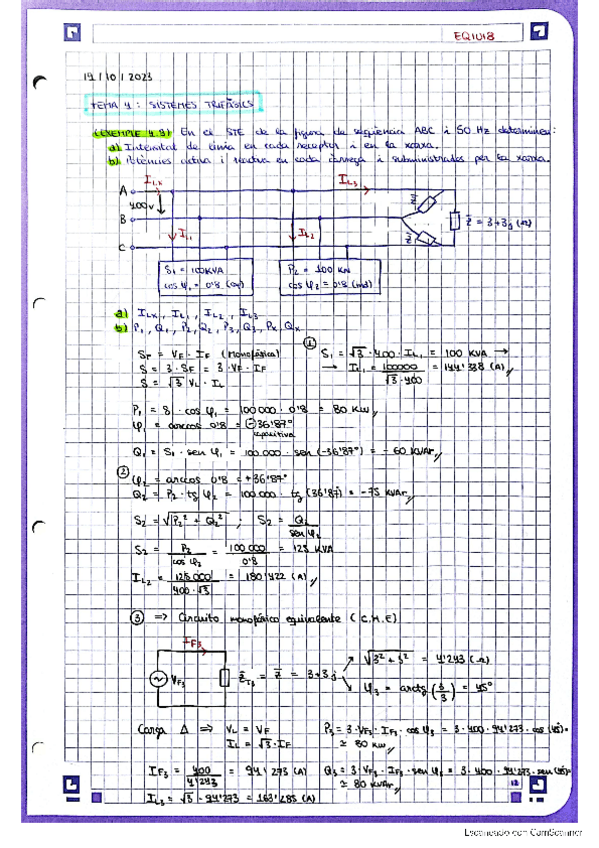 EQ1018
19/10/2023
TEMA 4: SISTEMES TRIFÀSICS
(EXEMPLE 4.9) En el STE de la figura de seqüencia ABC i 50 Hz determineu:
a) Intensitat de línia en cada receptor i en la xarxa.
b) Potències activa i reactiva en cada càrrega i subministrades per la xarxa.
A
ILx
IL3
400V
B
IL1
IL2
Z̄
Z̄
Z̄ = 3+3j (Ω)
C
S1 = 100KVA
cos φ1 = 0'8 (cap)
P2 = 100 KW
cos φ2 = 0'8 (ind)
a) ILx, IL1, IL2, IL3
b) P1, Q1, P2, Q2, P3, Q3, Px, Qx
SF = VF · IF (Monofásica)
S = 3·SF = 3·VF·IF
S = √3 VL·IL
① S1 = √3 · 400 · IL1 = 100 KVA →
→ IL1 = 100000 / √3·400 = 144'338 (A)
P1 = S · cos φ1 = 100 000 · 0'8 = 80 KW
φ1 = arccos 0'8 = (-)36'87°
capacitiva
Q1 = S1 · sen φ1 = 100 000 · sen (-36'87°) = - 60 KVAr
② φ2 = arccos 0'8 = +36'87°
Q2 = P2 · tg φ2 = 100 000 · tg (36'87) = -75 KVAr
S2 = √P2² + Q2² ; S2 = Q2 / sen φ2
S2 = P2 / cos φ2 = 100 000 / 0'8 = 125 KVA
IL2 = 125 000 / 400·√3 = 180'422 (A)
③ => Circuito monofásico equivalente (C.M.E)
IF3
VF3
Z̄T3 = Z̄ = 3+3j
√3² + 3² = 4'243 (Ω)
φ3 = arctg (3/3) = 45°
Carga Δ => VL = VF
IL = √3·IF
P3 = 3·VF3·IF3·cos φ3 = 3·400·94'273·cos (45)=
≃ 80 KW
IF3 = 400 / 4'243 = 94'273 (A)
Q3 = 3·VF3·IF3·sen φ3 = 3·400·94'273·sen (45)=
≃ 80 KVAr
IL3 = √3 · 94'273 = 163'285 (A)
Escaneado con CamScanner